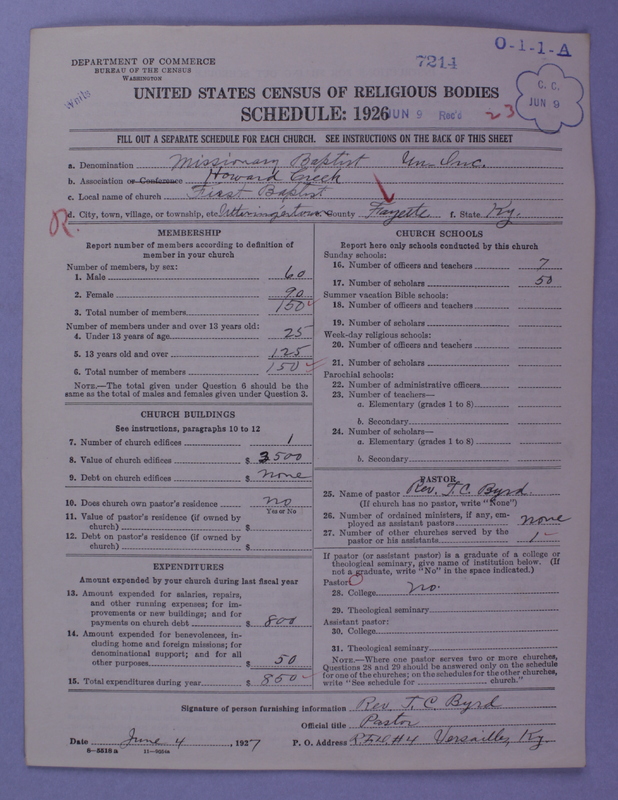 O-1-1-A
7214
DEPARTMENT OF COMMERCE
BUREAU OF THE CENSUS
WASHINGTON
C. C.
JUN 9
White
UNITED STATES CENSUS OF RELIGIOUS BODIES
SCHEDULE: 1926
JUN 9 Rec'd
23
FILL OUT A SEPARATE SCHEDULE FOR EACH CHURCH. SEE INSTRUCTIONS ON THE BACK OF THIS SHEET
a. Denomination Missionary Baptist Un-Inc.
b. Association or Conference Howard Creek
c. Local name of church First Baptist
R
d. City, town, village, or township, etc. County Fayette f. State Ky.
MEMBERSHIP
Report number of members according to definition of
member in your church
Number of members, by sex:
1. Male 60
2. Female 90
3. Total number of members 150
Number of members under and over 13 years old:
4. Under 13 years of age 25
5. 13 years old and over 125
6. Total number of members 150
NOTE.—The total given under Question 6 should be the
same as the total of males and females given under Question 3.
CHURCH BUILDINGS
See instructions, paragraphs 10 to 12
7. Number of church edifices 1
8. Value of church edifices $ 3500
9. Debt on church edifices $ none
10. Does church own pastor's residence no
Yes or No
11. Value of pastor's residence (if owned by
church) $
12. Debt on pastor's residence (if owned by
church) $
EXPENDITURES
Amount expended by your church during last fiscal year
13. Amount expended for salaries, repairs,
and other running expenses; for im-
provements or new buildings; and for
payments on church debt $ 800
14. Amount expended for benevolences, in-
cluding home and foreign missions; for
denominational support; and for all
other purposes $ 50
15. Total expenditures during year $ 850
CHURCH SCHOOLS
Report here only schools conducted by this church
Sunday schools:
16. Number of officers and teachers 7
17. Number of scholars 50
Summer vacation Bible schools:
18. Number of officers and teachers
19. Number of scholars
Week-day religious schools:
20. Number of officers and teachers
21. Number of scholars
Parochial schools:
22. Number of administrative officers
23. Number of teachers—
a. Elementary (grades 1 to 8)
b. Secondary
24. Number of scholars—
a. Elementary (grades 1 to 8)
b. Secondary
PASTOR
25. Name of pastor Rev. T. C. Byrd
(If church has no pastor, write "None")
26. Number of ordained ministers, if any, em-
ployed as assistant pastors none
27. Number of other churches served by the
pastor or his assistants 1
If pastor (or assistant pastor) is a graduate of a college or
theological seminary, give name of institution below. (If
not a graduate, write "No" in the space indicated.)
Pastor:
28. College no.
29. Theological seminary
Assistant pastor:
30. College
31. Theological seminary
NOTE.—Where one pastor serves two or more churches,
Questions 28 and 29 should be answered only on the schedule
for one of the churches; on the schedules for the other churches,
write "See schedule for church."
Signature of person furnishing information Rev. T. C Byrd
Official title Pastor
Date June 4, 1927 P. O. Address R.F.D. #4 Versailles, Ky.